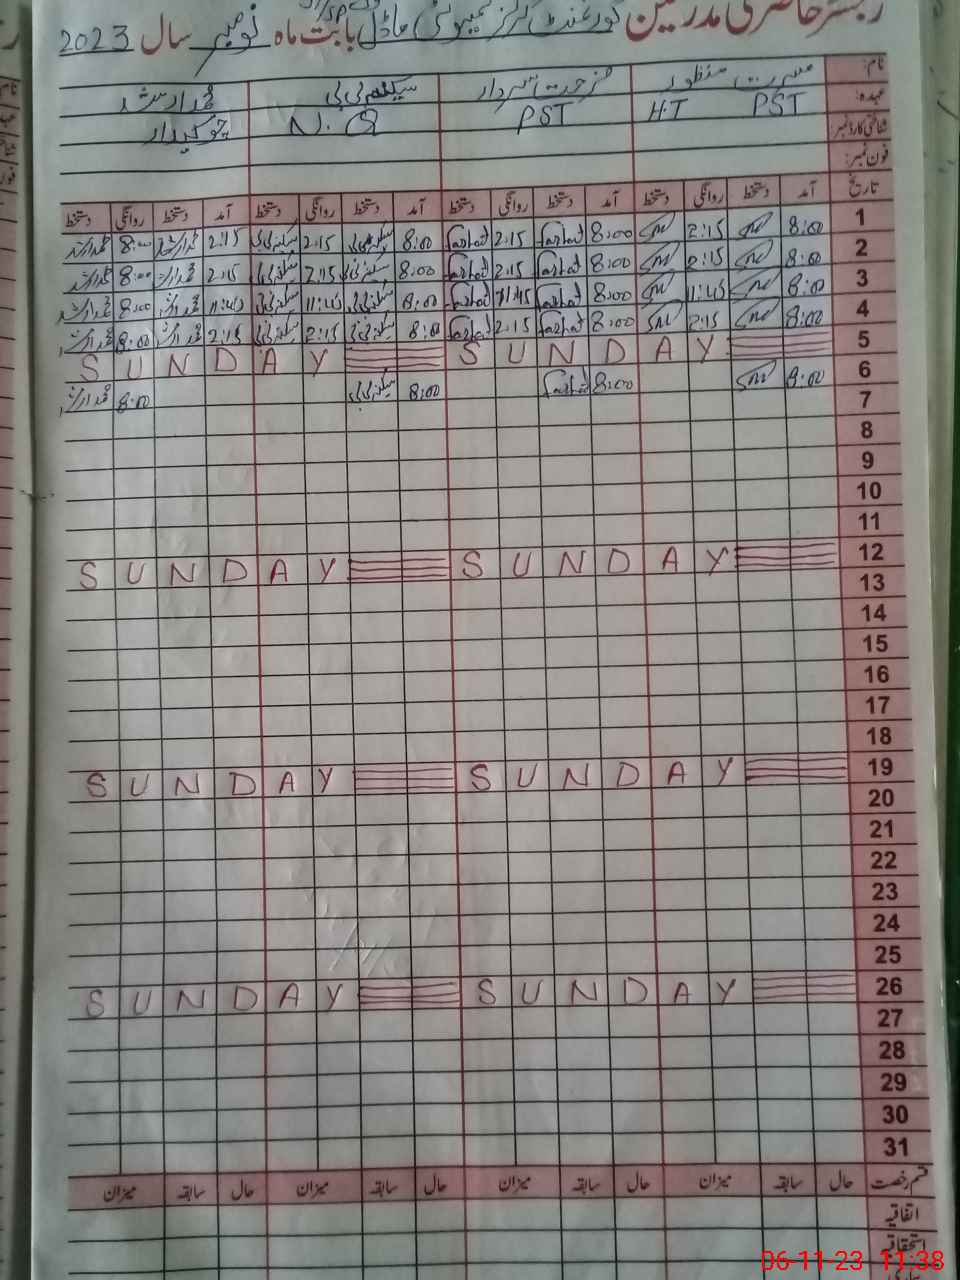 رجسٹر حاضری مدرسین گورنمنٹ گرلز کمیونٹی ماڈل بابت ماہ نومبر سال 2023
نام: مسرت منظور فرحت سردار سکینہ بی بی
عہدہ: PST HT PST N.Q چوکیدار
شناختی کارڈ نمبر:
فون نمبر:
تاریخ آمد دستخط روانگی دستخط آمد دستخط روانگی دستخط آمد دستخط روانگی دستخط آمد دستخط روانگی دستخط
1 8:00 2:15 8:00 Farhat 2:15 Farhat 8:00 سکینہ بی بی 2:15 سکینہ بی بی 2:15 8:00
2 8:00 2:15 8:00 Farhat 2:15 Farhat 8:00 سکینہ بی بی 2:15 سکینہ بی بی 2:15 8:00
3 8:00 11:45 8:00 Farhat 11:45 Farhat 8:00 سکینہ بی بی 11:45 سکینہ بی بی 11:45 8:00
4 8:00 2:15 8:00 Farhat 2:15 Farhat 8:00 سکینہ بی بی 2:15 سکینہ بی بی 2:15 8:00
5 SUNDAY SUNDAY
6 8:00 8:00 Farhat 8:00 سکینہ بی بی 8:00
7
8
9
10
11
12 SUNDAY SUNDAY
13
14
15
16
17
18
19 SUNDAY SUNDAY
20
21
22
23
24
25
26 SUNDAY SUNDAY
27
28
29
30
31
قسم رخصت حال سابقہ میزان حال سابقہ میزان حال سابقہ میزان حال سابقہ میزان
اتفاقیہ
استحقاقیہ
06-11-23 11:38